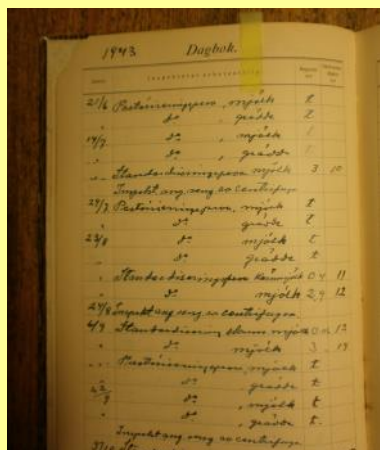 1943 Dagbok.
21/6 Pastöriseringsprov, mjölk t
" do , grädde t
14/7 " do , mjölk
" do , grädde
" Standardiseringsprov mjölk 3 10
Inspekt. ang. reng. av centrifuge
29/7 Pastöriseringsprov, mjölk t
" do , grädde t
23/8 do mjölk t
" do grädde t
" Standardiseringsprov 0,4 11
" do mjölk 2,9 12
Inspekt ang reng av centrifugen
6/9 Standardisering mjölk 12
" do mjölk 3
" Pastöriseringsprov, mjölk t
" do , grädde t
do , mjölk t
" do , grädde t.
Inspekt ang. reng av centrifuge